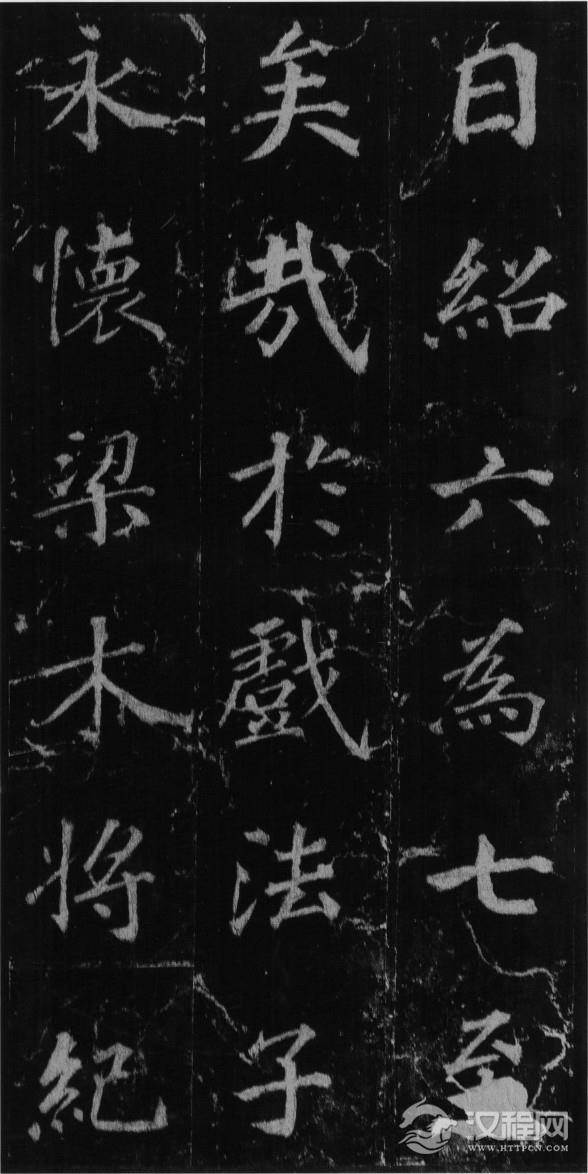 日紹六為七至
矣哉於戲法子
永懷梁木將紀
汉程网
WWW.HTTPCN.COM